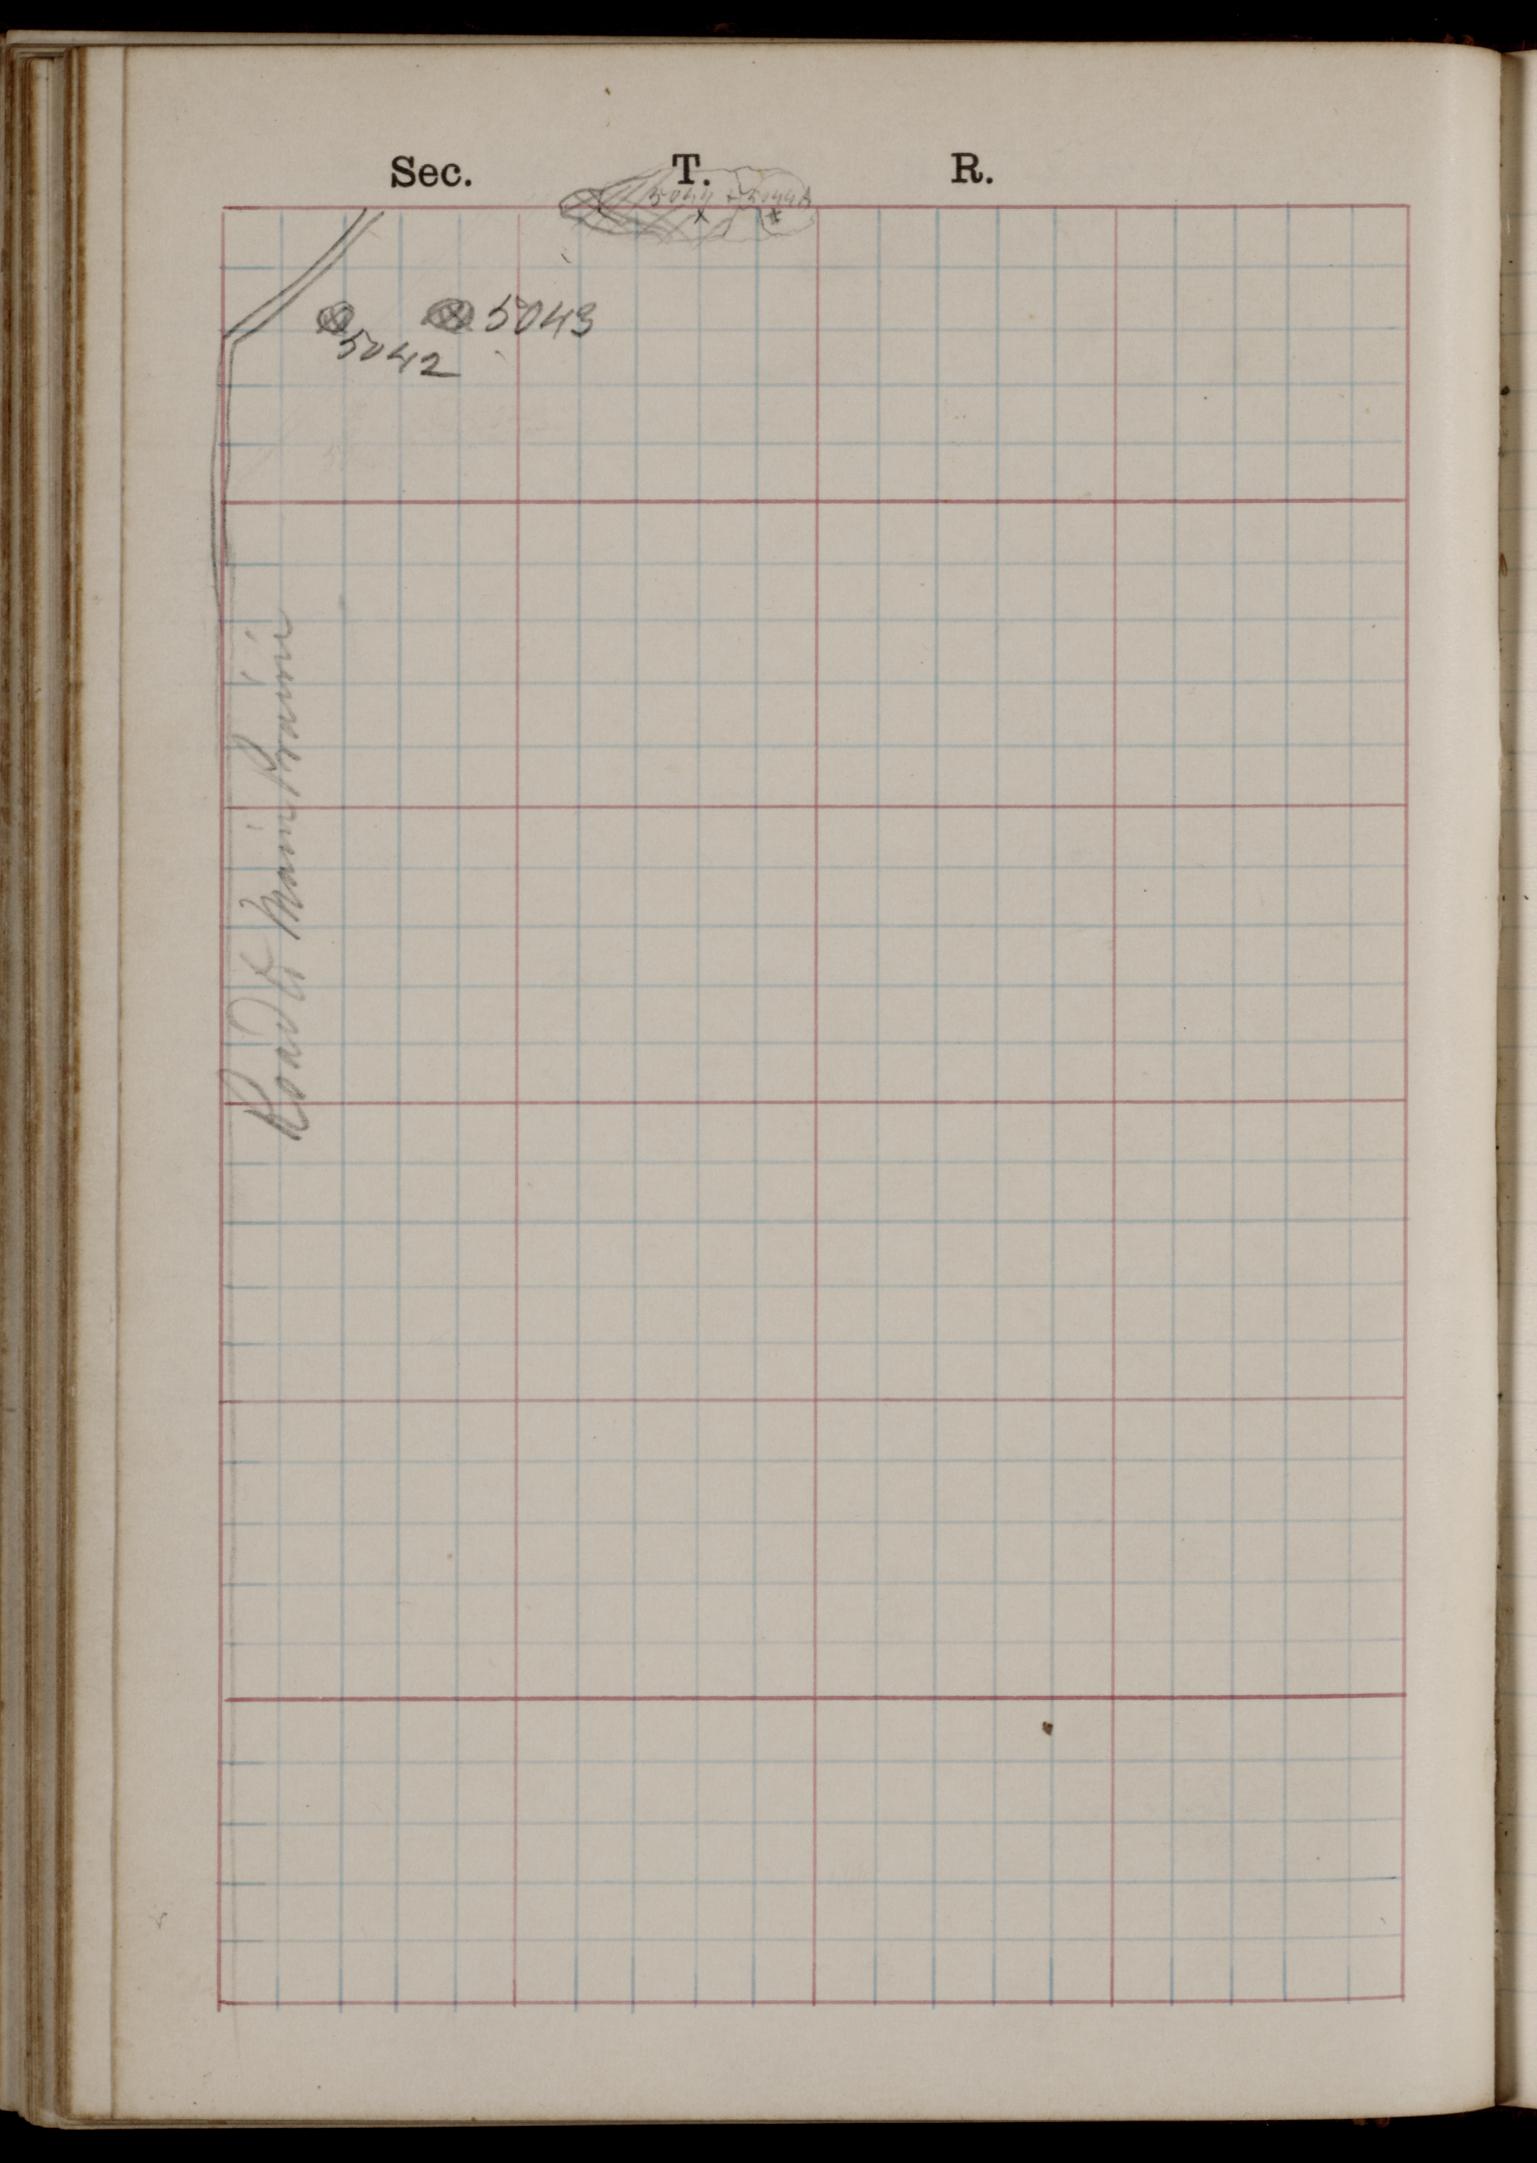 Sec. T. R.
5044 + 5044A
5043
5042
Road to Main Prairie